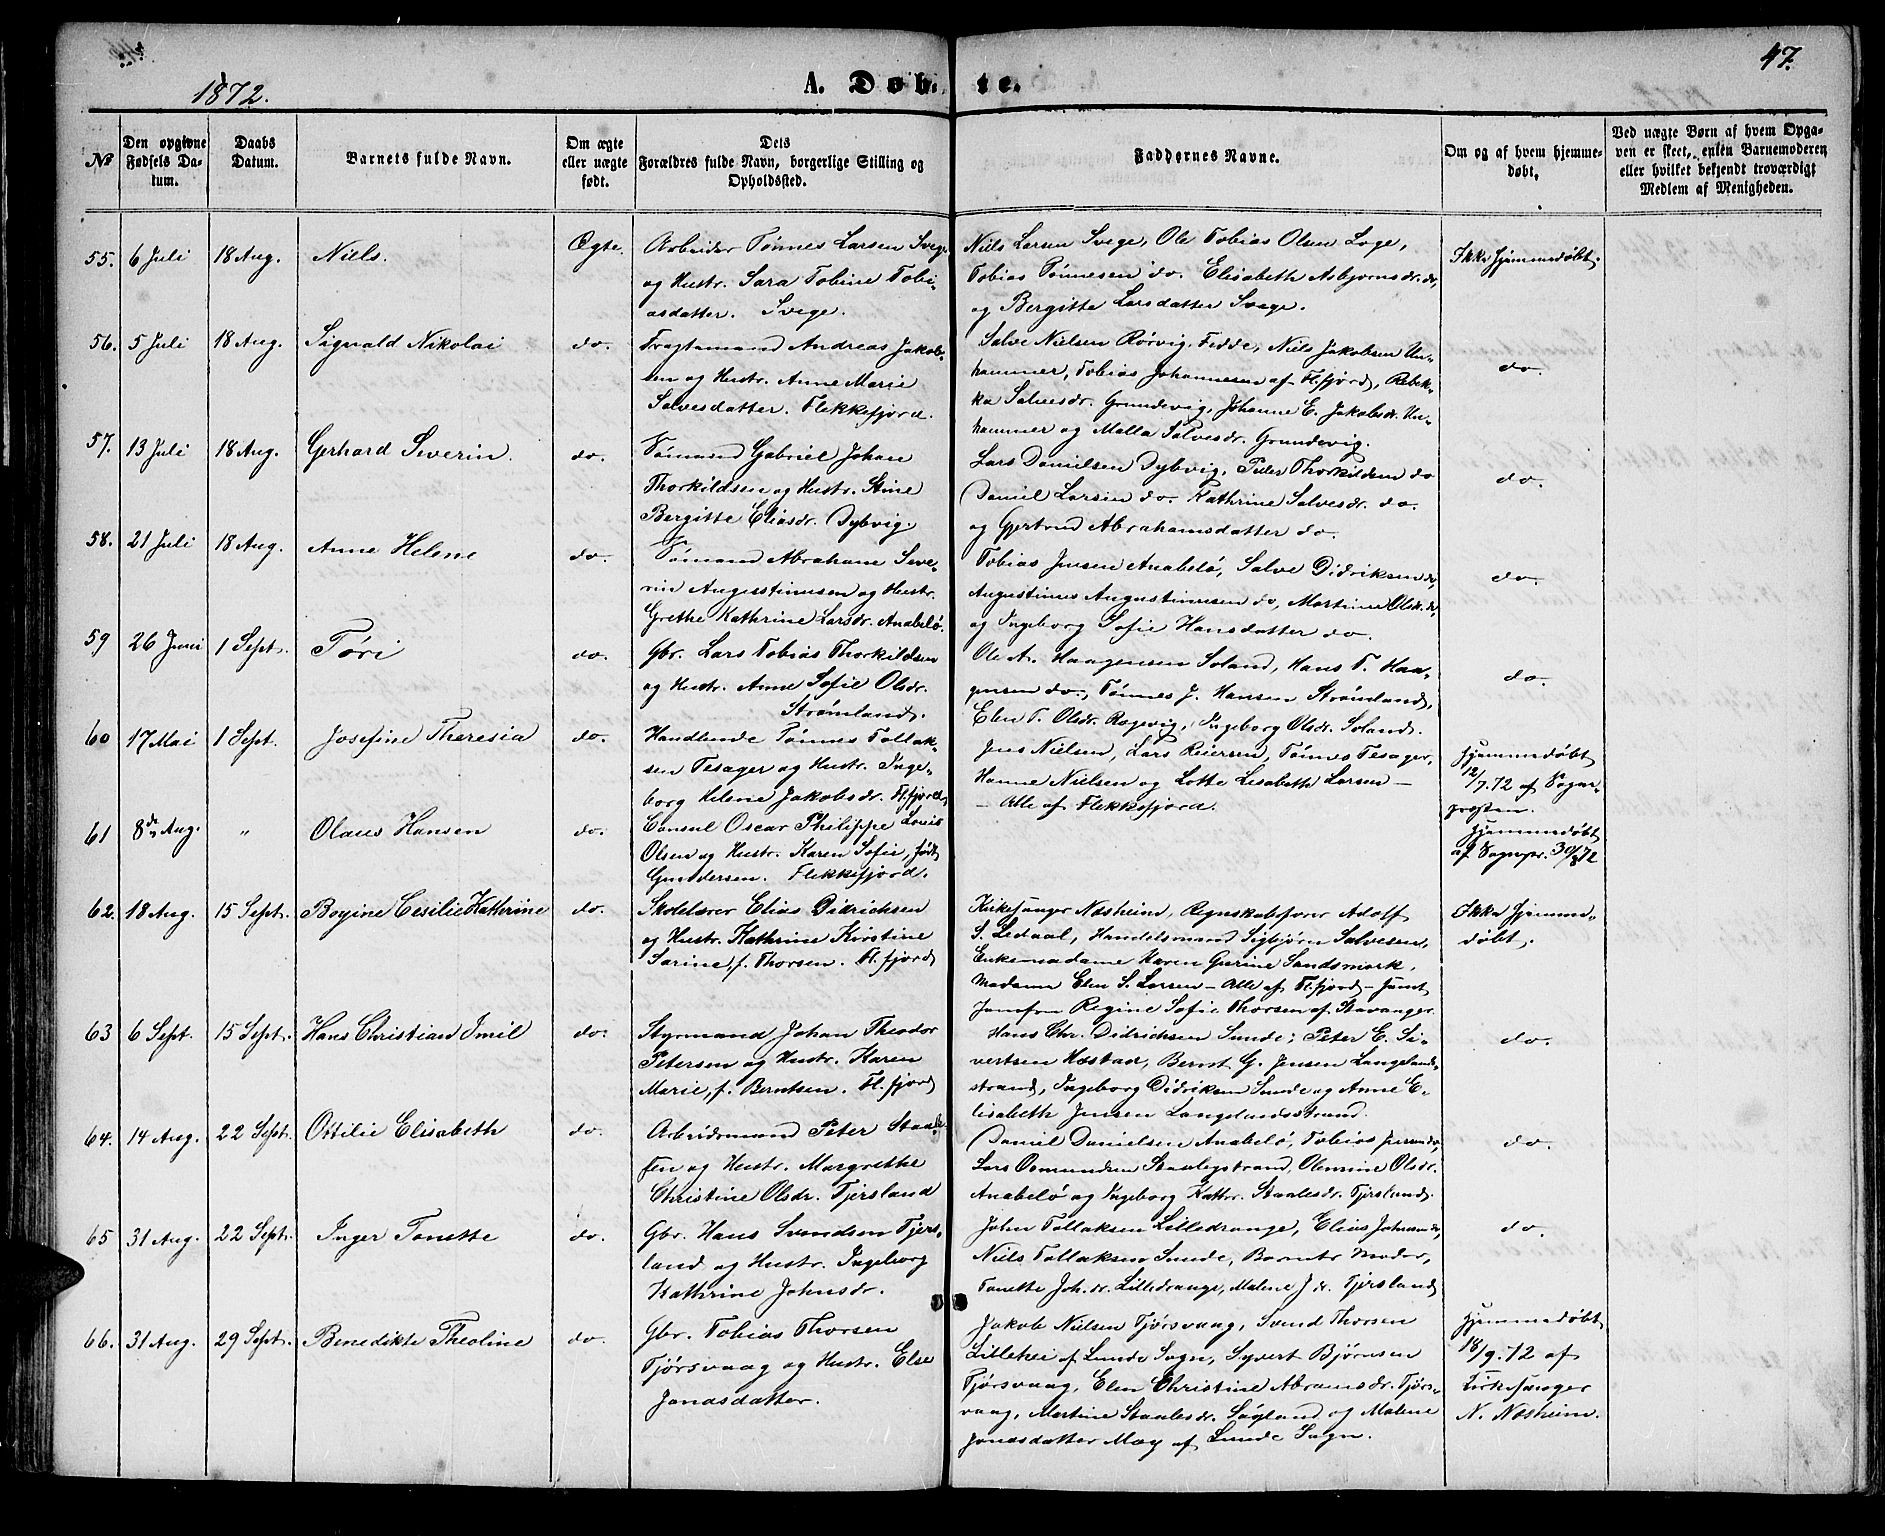 1872.
A. Døbte.
47.
No
Den opgivne Fødsels Datum.
Daabs Datum.
Barnets fulde Navn.
Om ægte eller uægte født.
Dets Forældres fulde Navn, borgerlige Stilling og Opholdssted.
Faddernes Navne.
Om og af hvem hjemmedøbt.
Ved uægte Børn af hvem Opgaven er skeet, enten Barnemoderen eller hvilket bekjendt troværdigt Medlem af Menigheden.
55. 6 Juli 18 Aug. Niels. Ægte.
Arbeider Tønnes Larsen Svege
og Hustr. Sara Tobine Tobi-
asdatter. Svege.
Niels Larsen Svege, Ole Tobias Olsen Loge,
Tobias Tønnesen do. Elisabeth Asbjørnsdr. do,
og Bergitte Larsdatter Svege.
Ikke hjemmedøbt.
56. 5 Juli 18 Aug. Sigvald Nikolai do.
Fragtemand Andreas Jakob-
sen og Hustr. Anne Marie
Salvesdatter. Flekkefjord.
Salve Nielsen Rørvig, Fedde, Niels Jakobsen Un-
hammer, Tobias Johannesen af Fl.fjord, Rebek-
ka Salvesdr. Grundevig, Johanne E. Jakobsdr. Un-
hammer og Malla Salvesdr. Grundevig.
do.
57. 13 Juli 18 Aug. Gerhard Severin. do.
Sømand Gabriel Johan
Thorkildsen og Hustr. Stine
Bergitte Eliasdr. Dybvig.
Lars Danielsen Dybvig, Peder Thorkildsen do
Daniel Larsen do. Kathrine Salvesdr. do.
og Gjertrud Abrahamsdatter do.
do.
58. 21 Juli 18 Aug. Anne Helene do.
Sømand Abrahane Seve-
rin Augustinusen og Hustr.
Grethe Kathrine Larsdr. Anabelø.
Tobias Jensen Anabelø, Salve Didriksen do,
Augustinus Augustinusen do, Martine Olsdr. do
og Ingeborg Sofie Hansdatter do.
do.
59 26 Juni 1 Sept. Tøri do.
Gbr. Lars Tobias Thorkildsen
og Hustr. Anne Sofie Olsdr.
Strømland.
Ole A. Haagensen Soland, Hans T. Haa-
gensen do., Tønnes J. Hansen Strømland,
Elen T. Olsdr. Rægevig, Ingeborg Olsdr. Soland.
do.
60 17 Mai 1 Sept. Josefine Theresia do.
Handlende Tønnes Tollak-
sen Tesager og Hustr. Inge-
borg Helene Jakobsdr. Fl.fjord
Jens Nielsen, Lars Reiersen, Tønnes Tesager,
Hanne Nielsen og Lotte Lisabeth Larsen —
— Alle af Flekkefjord.
Hjemmedøbt
12/7.72 af Sogne-
præsten.
61 8de Aug. " Olaus Hansen do.
Consul Oscar Philippe Louis
Olsen og Hustr. Karen Sofie, født
Gundersen. Flekkefjord.
Hjemmedøbt
af Sognepr. 30/8 72
62. 18 Aug. 15 Sept. Boyine Cesilie Kathrine do.
Skolelærer Elias Didrichsen
og Hustr. Kathrine Kirstine
Sarine, f. Thorsen. Fl.fjord
Kirkesanger Næsheim, Regnskabsfører Adolf
S. Ledaal, Handelsmand Sigbjørn Salvesen,
Enkemadame Karen Gurine Sandsmark,
Madame Elen S. Larsen — Alle af Fl.fjord — samt
Jomfru Regine Sofie Thorsen af Stavanger.
Ikke hjemme-
døbt.
63 6 Sept. 15 Sept. Hans Christian Imil do.
Styrmand Johan Theodor
Petersen og Hustr. Karen
Marie, f. Berntsen. Fl.fjord
Hans Chr. Didrichsen Sunde, Peter E. Si-
vertsen Høstad, Bernt G. Jensen Langeland-
strand, Ingeborg Didriksen Sunde og Anne E-
lisabeth Jensen Langelandsstrand.
do.
64. 14 Aug. 22 Sept. Ottilie Elisabeth do.
Arbeidsmand Peter Staale-
sen og Hustr. Margrethe
Christine Olsdr. Tjersland
Daniel Danielsen Anabelø, Tobias Jensen do,
Lars Osmundsen Staalegstrand, Olemine Olsdr.
Anabelø og Ingeborg Kathr. Staalesdr. Tjersland.
do.
65 31 Aug. 22 Sept. Inger Tonette do.
Gbr. Hans Svendsen Tjers-
land og Hustr. Ingeborg
Kathrine Johnsdr.
John Tollaksen Lilledrange, Elias Johnsen do,
Niels Tollaksen Sunde, Barnets Moder,
Tonette Joh.dr. Lilledrange, Malene J.dr. Tjersland
do.
66. 31 Aug. 29 Sept. Benedikte Theoline do.
Gbr. Tobias Thorsen
Tjørsvaag og Hustr. Else
Jonasdatter.
Jakob Nielsen Tjørsvaag, Svend Thorsen
Lillehei af Lunde Sogn, Syvert Bjørnsen
Tjørsvaag, Elen Christine Abramsdr. Tjørs-
vaag, Martine Staalesdr. Søyland og Malene
Jonasdatter Moy af Lunde Sogn.
Hjemmedøbt
18/9.72 af
Kirkesanger
N. Næsheim.